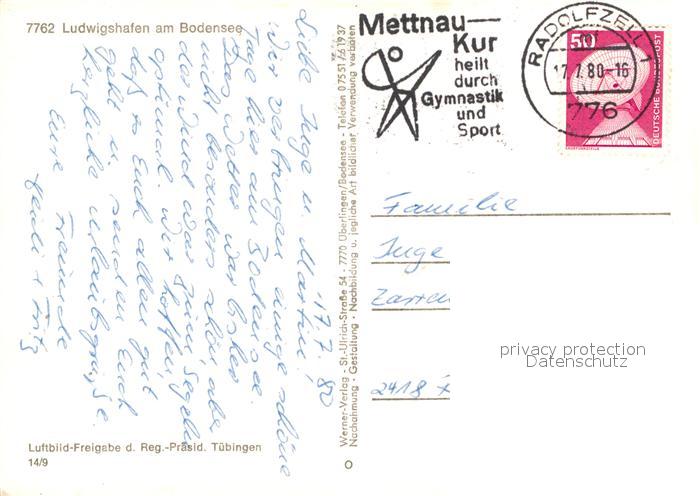 7762 Ludwigshafen am Bodensee
17.7.80
Liebe Inge u. Martin!
Wir verbringen einige schöne
Tage hier am Bodensee.
Das Wetter war bisher
nicht besonders schön, aber
der Wind war zum Segeln
optimal. Wir hoffen,
daß es Euch allen gut
geht u. senden Euch
herzliche Urlaubsgrüße.
Eure Freunde
Heidi + Fritz
Luftbild-Freigabe d. Reg.-Präsid. Tübingen
14/9
Werner-Verlag · St.-Ulrich-Straße 54 · 7770 Überlingen/Bodensee · Telefon 07551/61937
Nachahmung · Gestaltung · Nachbildung u. jegliche Art bildlicher Verwendung verboten
Mettnau—
Kur
heilt
durch
Gymnastik
und
Sport
RADOLFZELL 1
17.7.80-16
776
50
DEUTSCHE BUNDESPOST
Familie
Inge
Zarren
2418
privacy protection
Datenschutz